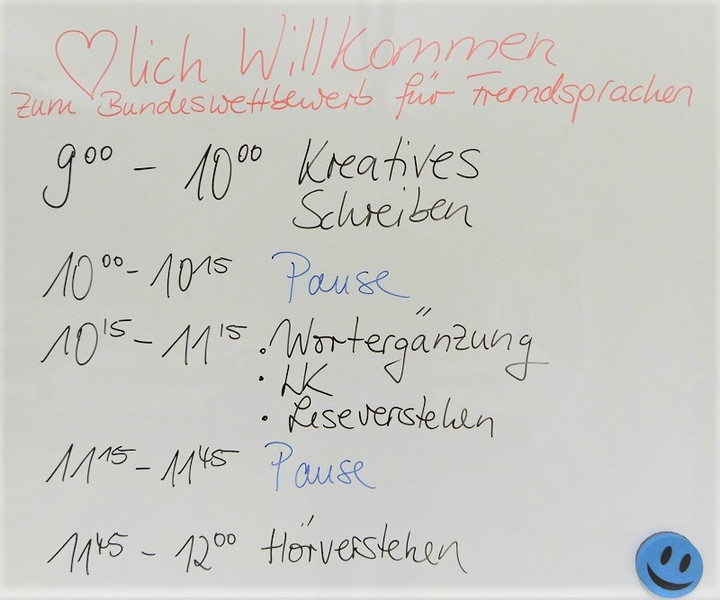 ♡lich Willkommen
zum Bundeswettbewerb für Fremdsprachen
9⁰⁰ – 10⁰⁰ Kreatives
Schreiben
10⁰⁰ - 10¹⁵ Pause
10¹⁵ – 11¹⁵ · Wortergänzung
· LK
· Leseverstehen
11¹⁵ – 11⁴⁵ Pause
11⁴⁵ – 12⁰⁰ Hörverstehen